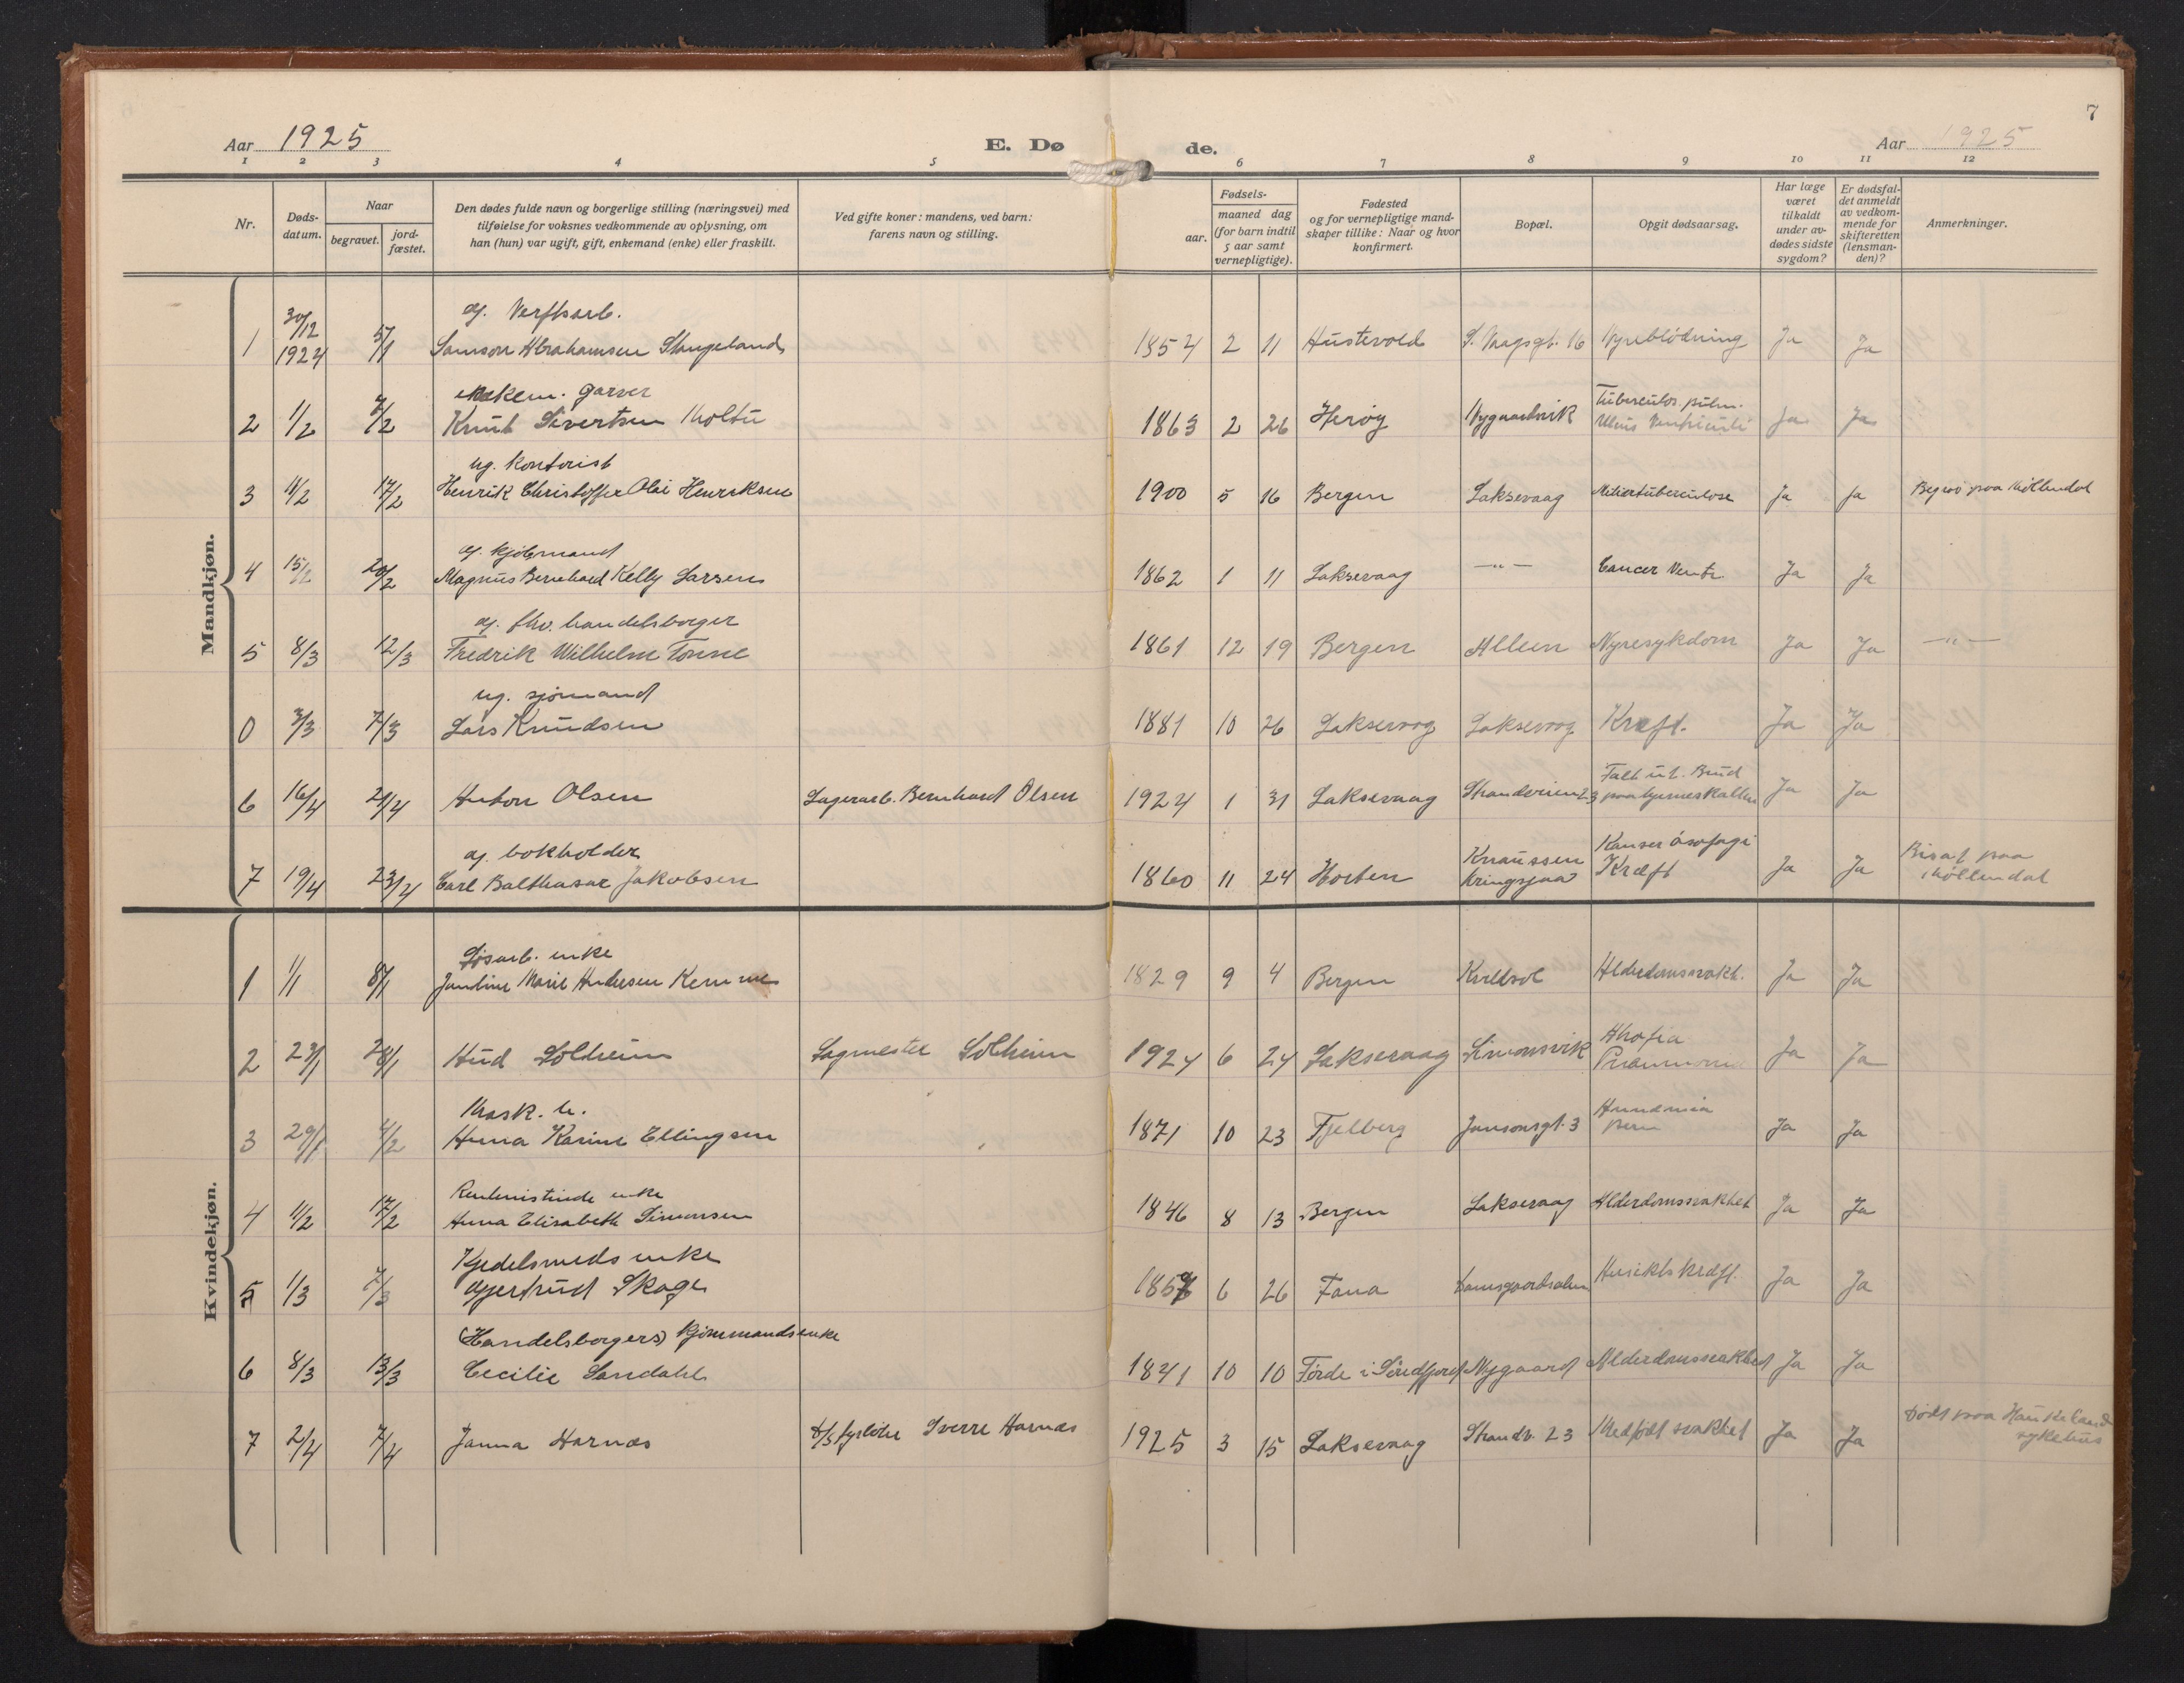 7
Aar 1925
E. Dø
de.
Aar 1925
1 2 3 4 5 6 7 8 9 10 11 12
Nr.
Døds-
datum.
Naar
begravet.
jord-
fæstet.
Den dødes fulde navn og borgerlige stilling (næringsvei) med
tilføielse for voksnes vedkommende av oplysning, om
han (hun) var ugift, gift, enkemand (enke) eller fraskilt.
Ved gifte koner: mandens, ved barn:
farens navn og stilling.
Fødsels-
aar.
maaned dag
(for barn indtil
5 aar samt
vernepligtige).
Fødested
og for vernepligtige mand-
skaper tillike: Naar og hvor
konfirmert.
Bopæl.
Opgit dødsaarsag.
Har læge
været
tilkaldt
under av-
dødes sidste
sygdom?
Er dødsfal-
det anmeldt
av vedkom-
mende for
skifteretten
(lensman-
den)?
Anmerkninger.
Mandkjøn.
30/12 g. Verftsarb.
1 1924 5/1 Samson Abrahamsen Stangeland 1854 2 11 S. Vaagsgt. 16 Nyreblødning Ja Ja
enkem. garver Tuberculos. pulm.
2 1/2 7/2 Knut Sivertsen Moltu 1863 2 26 Herøy Nygaardsvik Ulcus Ventriculi Ja Ja
ug. kontorist
3 11/2 17/2 Henrik Christoffer Olai Henriksen 1900 5 16 Bergen Laksevaag Miliærtuberculose Ja Ja paa Møllendal
g. kjøbmand
4 15/2 20/2 Magnus Bernhard Kelly Larsen 1862 1 11 Laksevaag —"— Cancer Ventr. Ja Ja
g. fhv. handelsborger
5 8/3 12/3 Fredrik Wilhelm Tonne 1861 12 19 Bergen Alleen Nyresykdom Ja Ja —"—
ug. sjømand
0 3/3 7/3 Lars Knudsen 1881 10 26 Laksevaag Laksevaag Kræft. Ja Ja
Falt ut. Brud
6 16/4 21/4 Anton Olsen Lagerarb. Bernhard Olsen 1924 1 31 Laksevaag Strandveien 23 paa hjerneskallen Ja Ja
g. bokholder Knaussen Kanser øsofagi Bisat paa
7 19/4 23/4 Carl Balthasar Jakobsen 1860 11 24 Horten Kringsjaa Kræft Ja Ja Møllendal
Kvindekjøn.
Løsarb. enke
1 1/1 8/1 Jandine Marie Andersen 1829 9 4 Bergen Alderdomssvakh. Ja Ja
2 23/1 28/1 Aud Solheim Sagmester Solheim 1924 6 24 Laksevaag Simonsvik Atrofia Ja Ja
Mask. h.
3 29/1 4/2 Anna Karine Ellingsen 1871 10 23 Fjelberg Jansonsgt. 3 Ja Ja
Rentenistinde enke
4 11/2 17/2 Anna Elisabeth Simonsen 1846 8 13 Bergen Laksevaag Alderdomssvakhet Ja Ja
Kjedelsmeds enke
5 1/3 7/3 Gjertrud Skage 6 26 Fana Damsgaardsalmen Ansiktskræft. Ja Ja
(Handelsborgers) kjømmandsenke
6 8/3 13/3 Cecilie Sandahl 1841 10 10 Førde i Søndfjord Nygaard Alderdomssvakhed Ja Ja
Død paa Haukeland
7 2/4 7/4 Janna Harnæs d/s fyrbøter Sverre Harnæs 1925 3 15 Laksevaag Strandv. 23 Medfødt svakhet Ja Ja sykehus